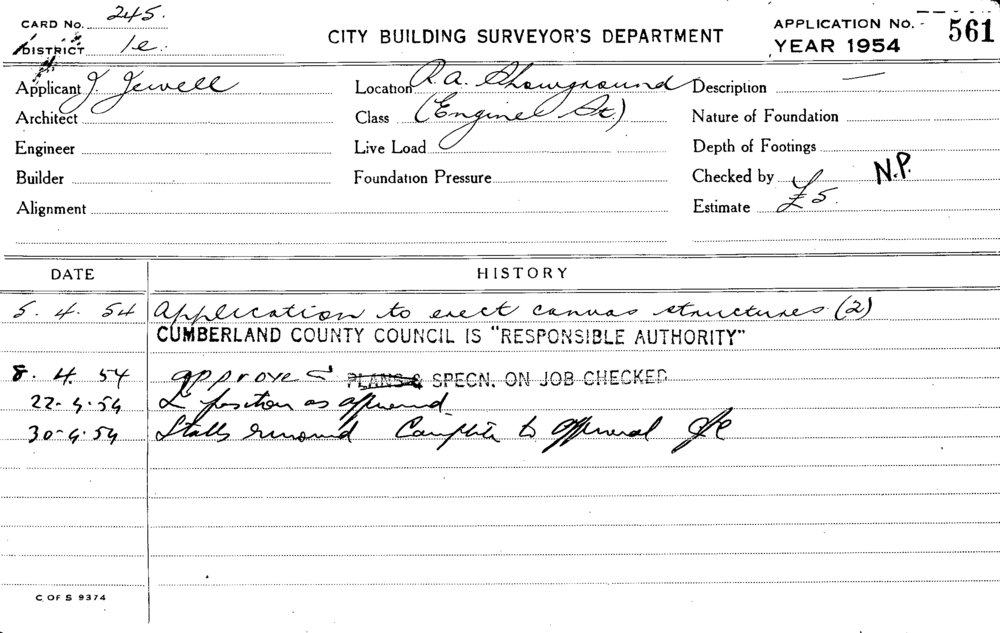 CARD No. 245.
DISTRICT 1e.
CITY BUILDING SURVEYOR'S DEPARTMENT
APPLICATION No. - 561
YEAR 1954
Applicant J. Jewell
Location R.A. Showground
Description —
Architect
Class (Engine St.)
Nature of Foundation
Engineer
Live Load
Depth of Footings
Builder
Foundation Pressure
Checked by N.P.
Alignment
Estimate £5.
DATE HISTORY
5. 4. 54 Application to erect canvas structures (2)
CUMBERLAND COUNTY COUNCIL IS "RESPONSIBLE AUTHORITY"
8. 4. 54 approved PLANS & SPECN. ON JOB CHECKED
22-4-54 In position as approved
30-4-54 Stalls removed Complete to approval
C OF S 9374